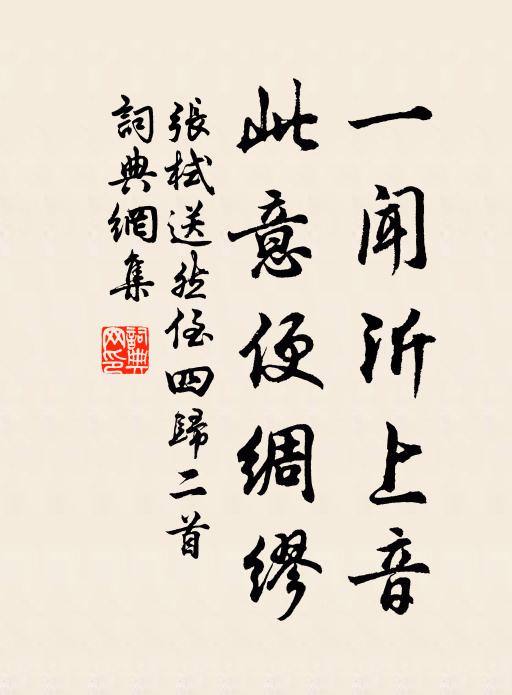 一闻沂上音
此意便綢缪
張栻送然侄四歸二首
詞典網集
詞典網印